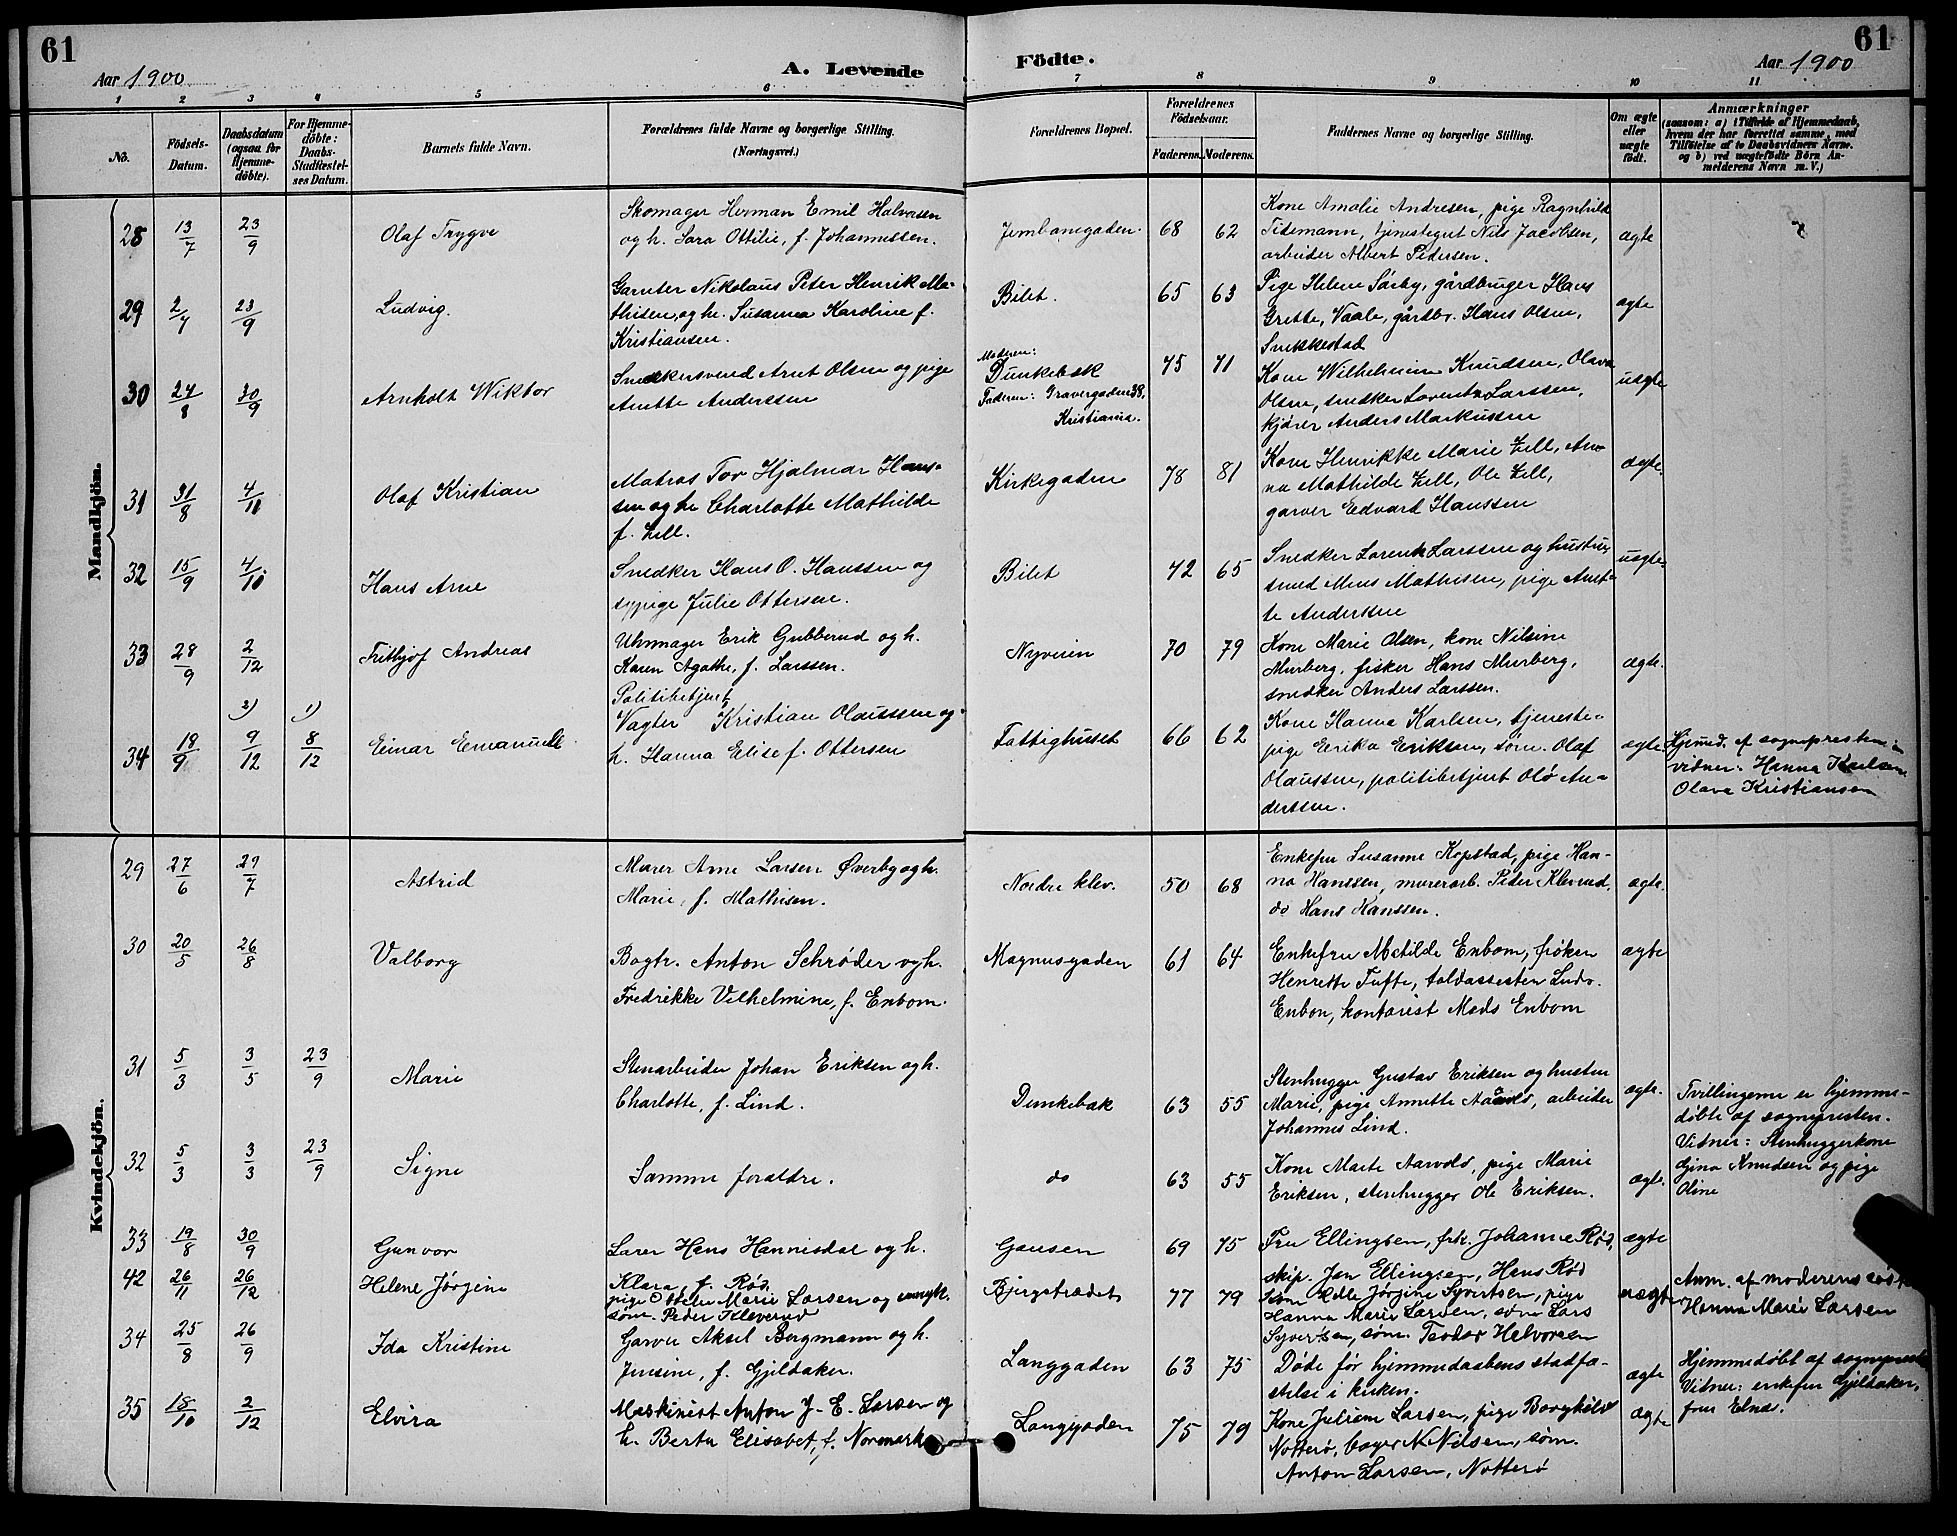 61
Aar 1900
A. Levende
1 2 3 4 5 6
No.
Födsels-Datum.
Daabsdatum (ogsaa for Hjemme-döbte).
For Hjemme-döbte: Daabs-Stadfæstel-ses Datum.
Barnets fulde Navn.
Forældrenes fulde Navne og borgerlige Stilling.
(Næringsvei.)
Mandkjön.
28 13/7 23/9 Olaf Trygve
Skomager Herman Emil Halvorsen
og h. Sara Ottilie, f. Johannessen.
29 2/7 23/9 Ludvig.
Garnter Nikolaus Peter Henrik Ma-
thisen, og h. Susanna Karoline f.
Kristiansen.
30 24/8 30/9 Arnholt Wiktor
Snedkersvend Arnt Olsen og pige
Anette Anderssen
31 31/8 4/11 Olaf Kristian
Matros Tor Hjalmar Hans-
sen og h. Charlotte Mathilde
f. Zell.
32 15/9 4/10 Hans Arne
Snedker Hans O. Hanssen og
sypige Julie Ottersen.
33 28/9 2/12 Frithjof Andreas
Uhrmager Erik Gubberud og h.
Karen Agathe, f. Larssen.
34 18/9 2) 9/12 1) 8/12 Einar Emanuel
Politibetjent,
Vagter Kristian Olaussen og
h. Hanna Elise f. Ottersen
Kvindekjön.
29 27/6 29/7 Astrid
Murer Arne Larsen Øverby og h.
Marie, f. Mathisen.
30 20/5 26/8 Valborg
Bogtr. Anton Schrøder og h.
Fredrikke Vilhelmine, f. Enbom.
31 5/3 3/5 23/9 Marie
Stenarbeider Johan Eriksen og h.
Charlotte, f. Lind.
32 5/3 3/3 23/9 Signe
Samme forældre.
33 19/8 30/9 Gunvor
Lærer Hans Hannisdal og h.
Klara, f. Rød.
42 26/11 26/12 Helene Jørgine
pige Othelie Marie Larsen og
søm. Peder Kleverud
34 25/8 26/9 Ida Kristine
Garver Aksel Bergmann og h.
Jensine, f. Gjeldaker.
35 18/10 2/12 Elvira
Maskinist Anton J. E. Larsen og
h. Berta Elisabet, f. Normark
61
Födte.
Aar 1900
7 8 9 10 11
Forældrenes Bopæl.
Forældrenes Födselsaar.
Faderens. Moderens.
Faddernes Navne og borgerlige Stilling.
Om ægte eller uægte födt.
Anmærkninger
(saasom: a) i Tilfælde af Hjemmedaab,
hvem der har forrettet samme, med
Tilföielse af to Daabsvidners Navne.
og b) ved uægtefödte Börn An-
melderens Navn m. V.)
Jernbanegaden. 68 62
Kone Amalie Andresen, pige Ragnhild
Tidemann, tjenstegut Nils Jacobsen,
arbeider Albert Pedersen.
ægte
Bilet. 65 63
Pige Helene Sørby, gårdbruger Hans
Grette, Vaale, gårdbr. Hans Olsen,
Snekkestad
ægte
Moderen:
Dunkebæk
Faderen: Gravergaden 38,
Kristiania.
75 71
Kone Wilhelmine Knudsen, Olava
Olsen, snedker Lorentz Larssen,
kjører Anders Markussen
uægte
Kirkegaden 78 81
Kone Henrikke Marie Zell, An-
na Mathilde Zell, Ole Zell,
garver Edvard Hanssen
ægte
Bilet 42 65
Snedker Lorentz Larssen og hustru,
smed Mens Mathisen, pige Anet-
te Anderssen
uægte
Nyveien 70 79
Kone Marie Olsen, kone Nilsine
Murberg, fisker Hans Murberg,
snedker Anders Larssen.
ægte.
Fattighuset 66 62
Kone Hanna Karlsen, tjeneste-
pige Erika Eriksen, søm. Olaf
Olaussen, politibetjent Olö An-
derssen.
ægte
Hjemd. af sognepresten
vidner: Hanna Karlsen
Olava Kristiansen
Nordre klev. 50 68
Enkefru Susanne Kopstad, pige Han-
na Hanssen, murerarb. Peder Kleverud,
do Hans Hanssen.
ægte.
Magnusgaden 61 64
Enkefru Metilde Enbom, frøken
Henrette Tufte, toldassesten Ludv.
Enbon, kontorist Mads Enbom
ægte
Dunkebæk 63 55
Stenhugger Gustav Eriksen og hustru
Marie, pige Annette Aarvold, arbeider
Johannes Lind.
ægte.
Tvillingerne er hjemme-
døbte af sognepresten.
Vidner: Stenhuggerkone
Gina Knudsen og pige
Oline
do 63 55
Kone Marte Aarvold, pige Marie
Eriksen, stenhugger Ole Eriksen.
ægte.
Gausen 69 75
Fru Ellingsen, frk. Johanne Rød,
skip. Jan Ellingsen, Hans Rød
ægte
Bjergstrædet 77 79
Kone Helle Jørgine Syvertsen, pige
Hanna Marie Larsen, søm Lars
Syvertsen, søm. Teodor Halvorsen
uægte
Anm. af moderens søster
Hanna Marie Larsen
Langgaden 63 75
Døde før hjemmedaabens stadfæ-
stelse i kirken.
ægte
Hjemmedøbt af sogneprest
Vidner: enkefru Gjeldaker,
frue Elnæs.
Langgaden 75 79
Kone Juliane Larsen, pige Borghild
Notterø, bager N. Nilsen, søm.
Anton Larsen, Notterø
ægte